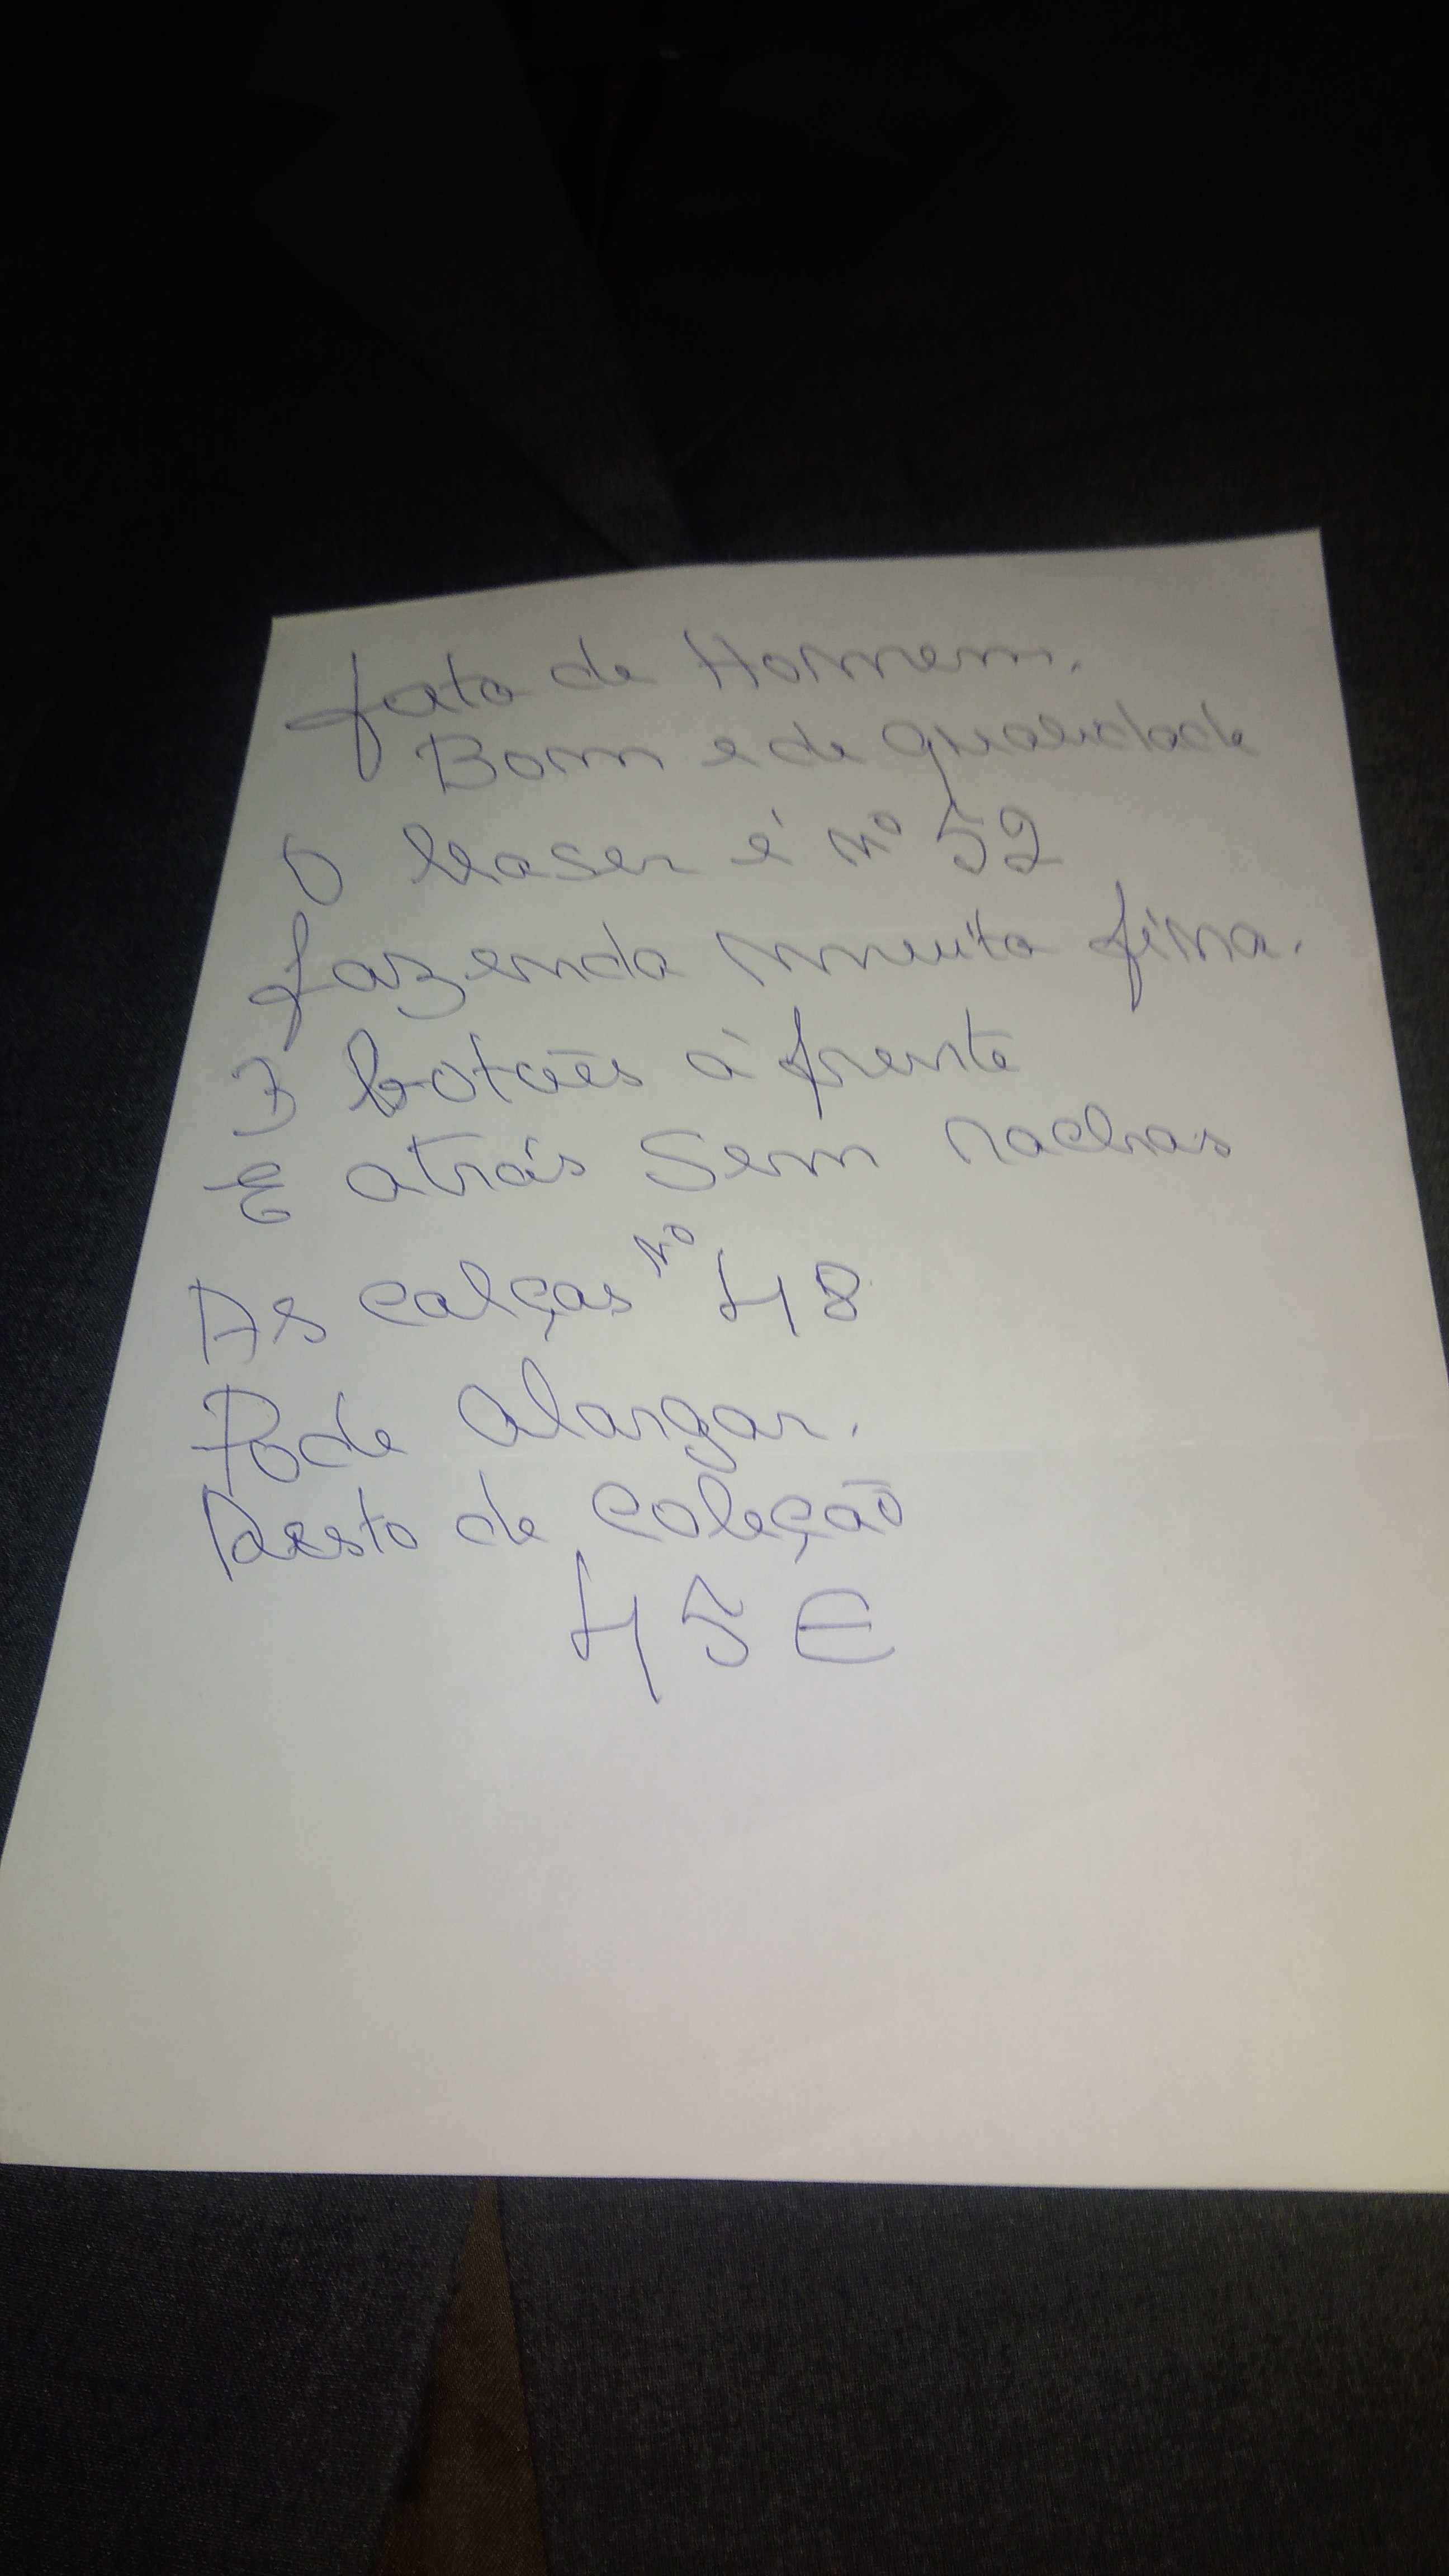 fato de Homem.
Bom e de qualidade
O blaser é nº 52
fazenda muita fina.
3 botões à frente
E atrás Sem rachas
As calças nº 48
Pode alargar.
Resto de coleção
45€